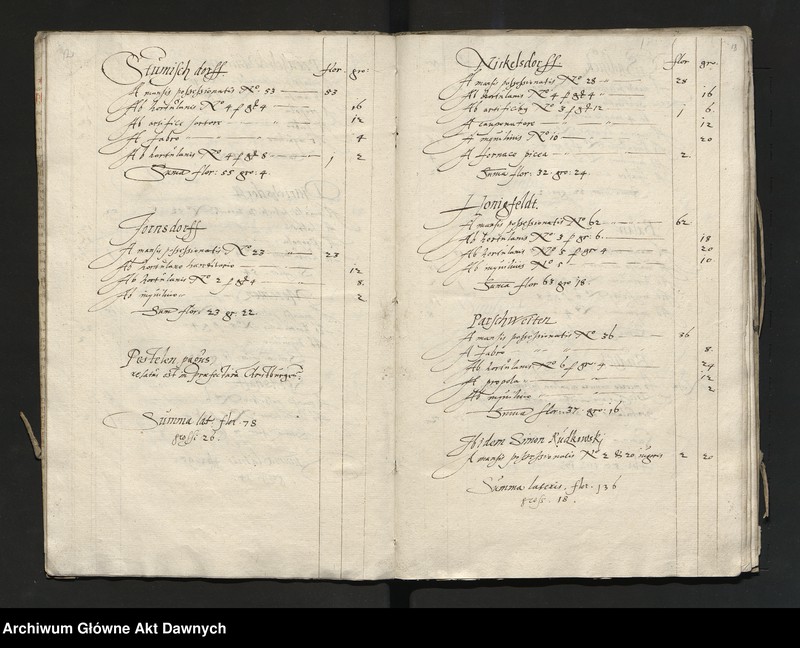 Stumisch dorff flor. gro:
A mansis possessionatis No. 53 53
Ab hortulanis No 4 p gr 4 16
Ab artifice sartore 12
A Fabro 4
Ab hortulanis No 4 p gr 8 j 2
Suma flor: 55 gro: 4.
Jornsdorff
A mansis possessionatis No. 23 23
Ab hortulano 12
Ab hortulanis No 2 p gr 4 8
Ab inquilino 2
Sum flor: 23 gr. 22.
Postelen pagus
relatus est in Praefectura Kristburgen:
Summa lat: flor. 78
gross: 26.
18
Nickelsdorff flor gro:
A mansis possessionatis No 28 28
Ab hortulanis No 4 p gr 4 16
Ab artificibus No 3 p gr 12 j 6
A cauponatore 12
A inquilinis No 10 20
A fornace picea 2
Suma flor: 32. gro: 24.
Honigfeldt.
A mansis possessionatis No 62 62
Ab hortulanis No 3 p gr: 6. 18
Ab hortulanis No 5 p gro 4 20
Ab inquilinis No 5 10
Suma flor 63 gro 18.
Parschwetten
A mansis possessionatis No. 36 36
A Fabro 8
Ab hortulanis No 6 p gr: 4 24
A propola 12
Ab inquilino 2
Summa flor: 37. gro: 16
Ibidem Simon Rudkowski
A mansis possessionatis No 2 & 20 iugeris 2 20
Summa lateris. flor. 136
gross. 18.
Archiwum Główne Akt Dawnych